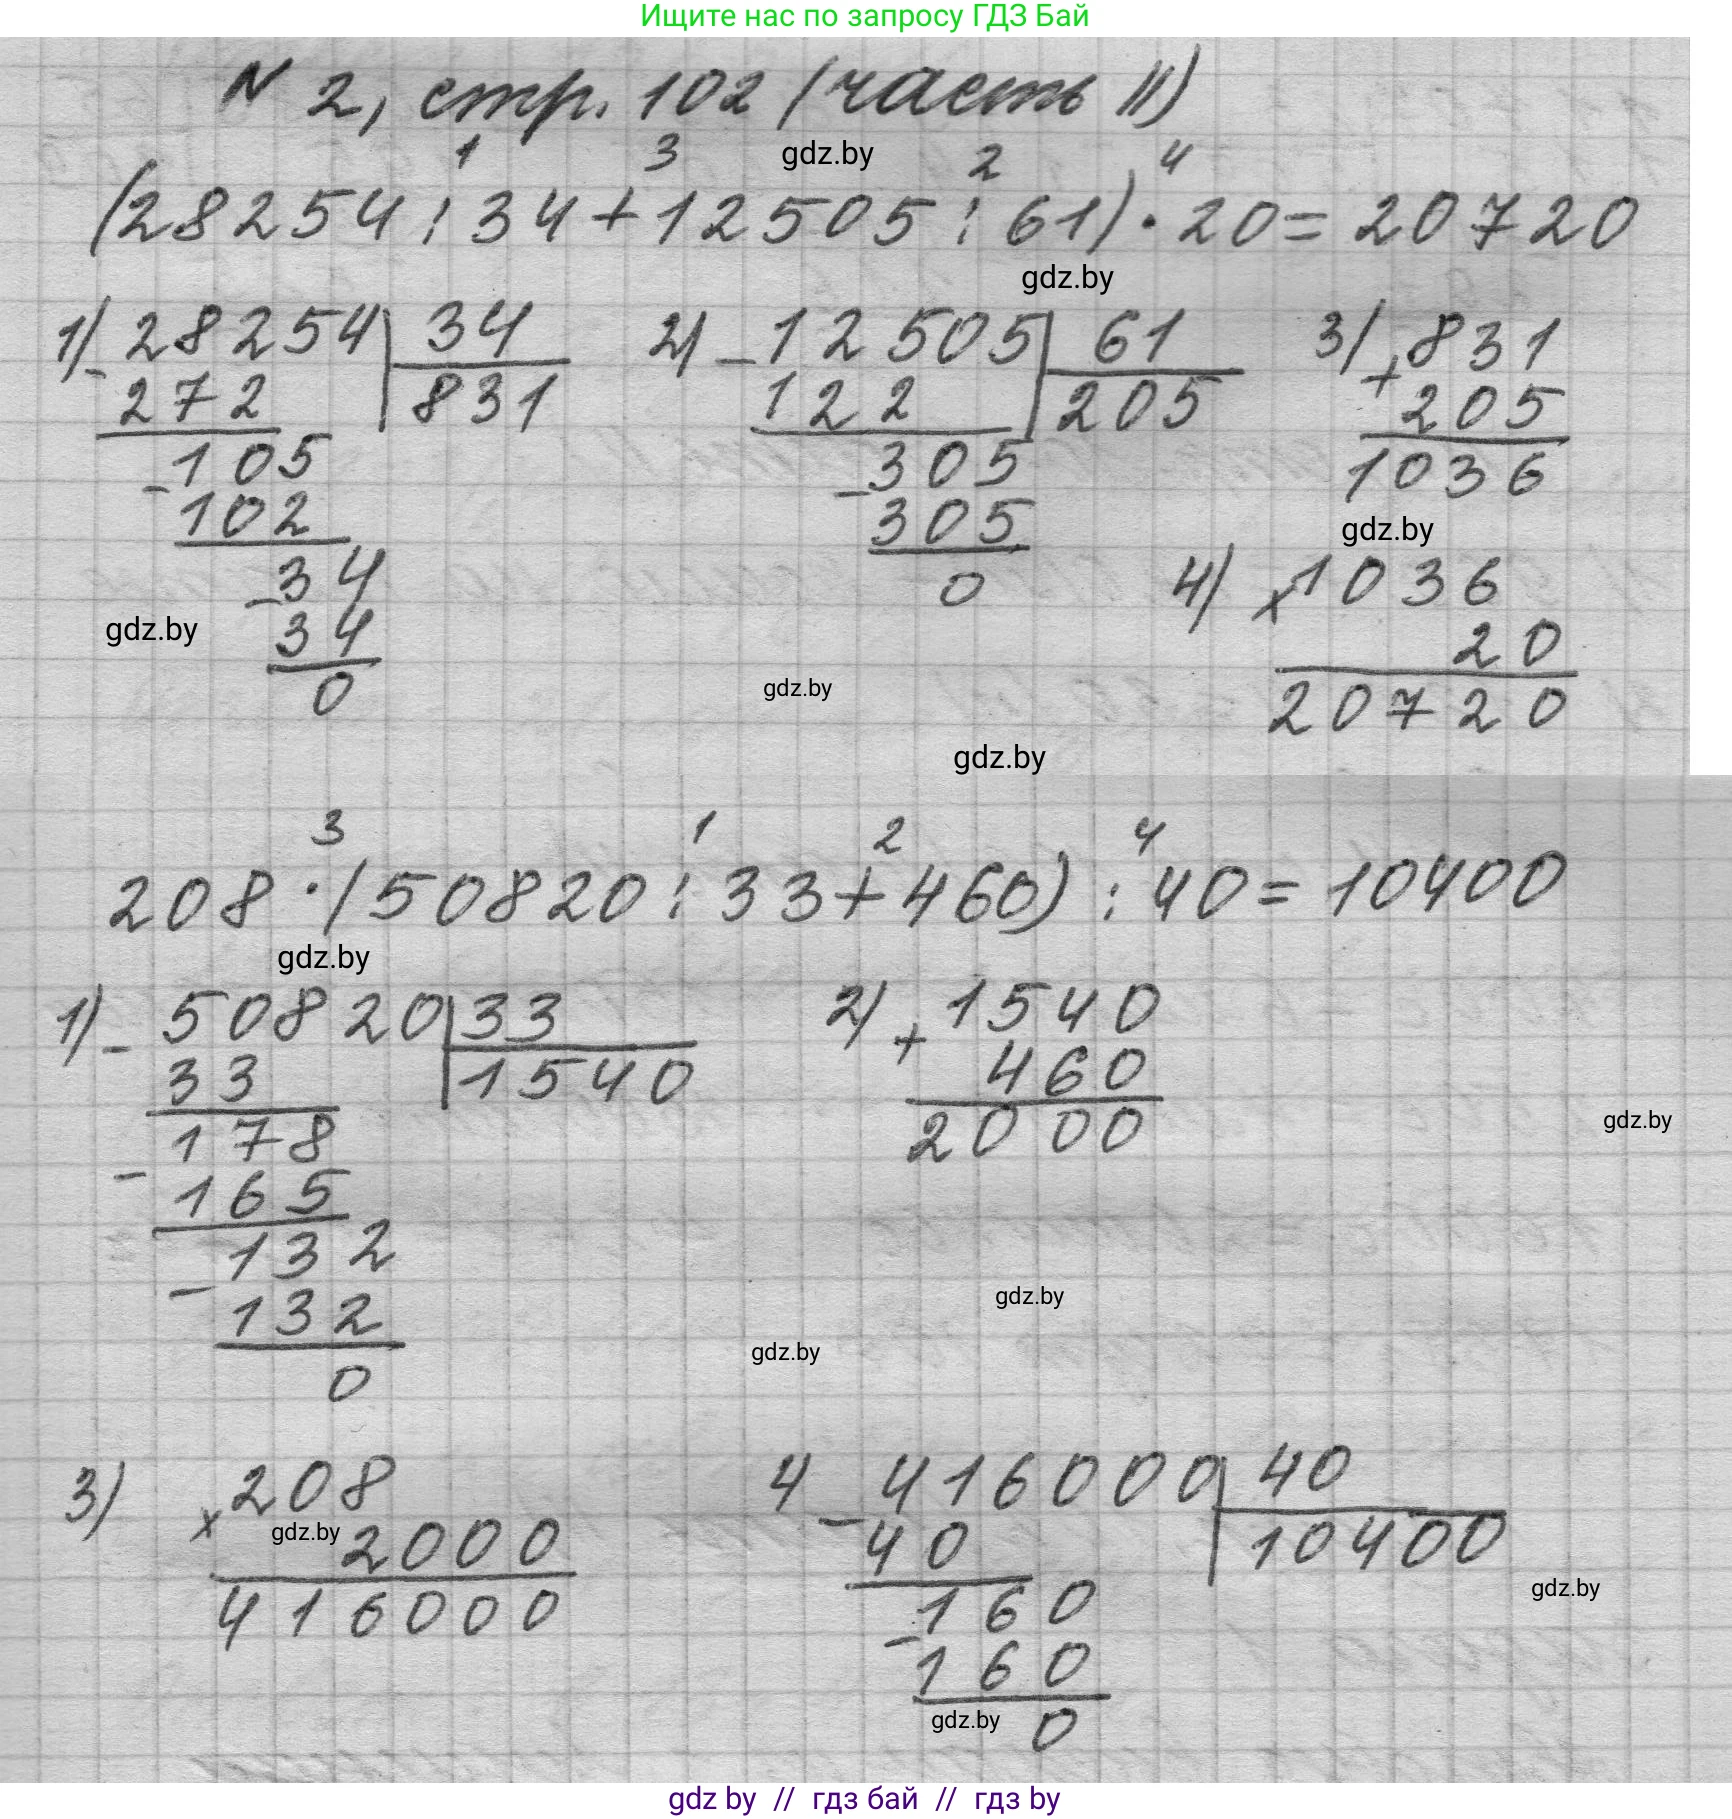 Ищите нас по запросу ГДЗ Бай
N 2, стр. 102 (часть II)
1 3 gdz.by 2 4
(28254 : 34 + 12505 : 61) · 20 = 20720
gdz.by
1) - 28254 | 34
272 | 831
- 105
102
- 34
34
0
gdz.by
2) - 12505 | 61
122 | 205
- 305
305
0
gdz.by
3) + 831
205
1036
gdz.by
4) x 1036
20
20720
gdz.by
3 1 2 4
208 · (50820 : 33 + 460) : 40 = 10400
gdz.by
1) - 50820 | 33
33 | 1540
- 178
165
- 132
132
0
2) + 1540
460
2000
gdz.by
gdz.by
gdz.by
3) x 208
gdz.by 2000
416000
4 - 416000 | 40
40 | 10400
- 160
160
gdz.by 0
gdz.by
gdz by // гдз бай // gdz by